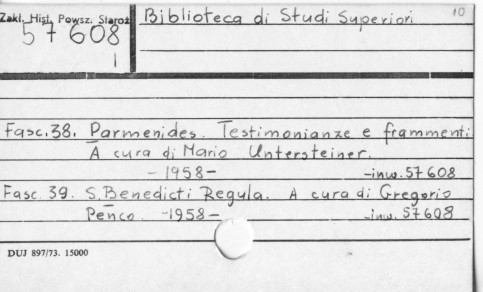 Zakł. Hist. Powsz. Staroż
57608
I
Biblioteca di Studi Superiori
10
Fasc.38. Parmenides. Testimonianze e frammenti
A cura di Mario Untersteiner.
- 1958 - -inw. 57608
Fasc. 39. S. Benedicti Regula. A cura di Gregorio
Penco -1958- -inw. 57608
DUJ 897/73. 15000